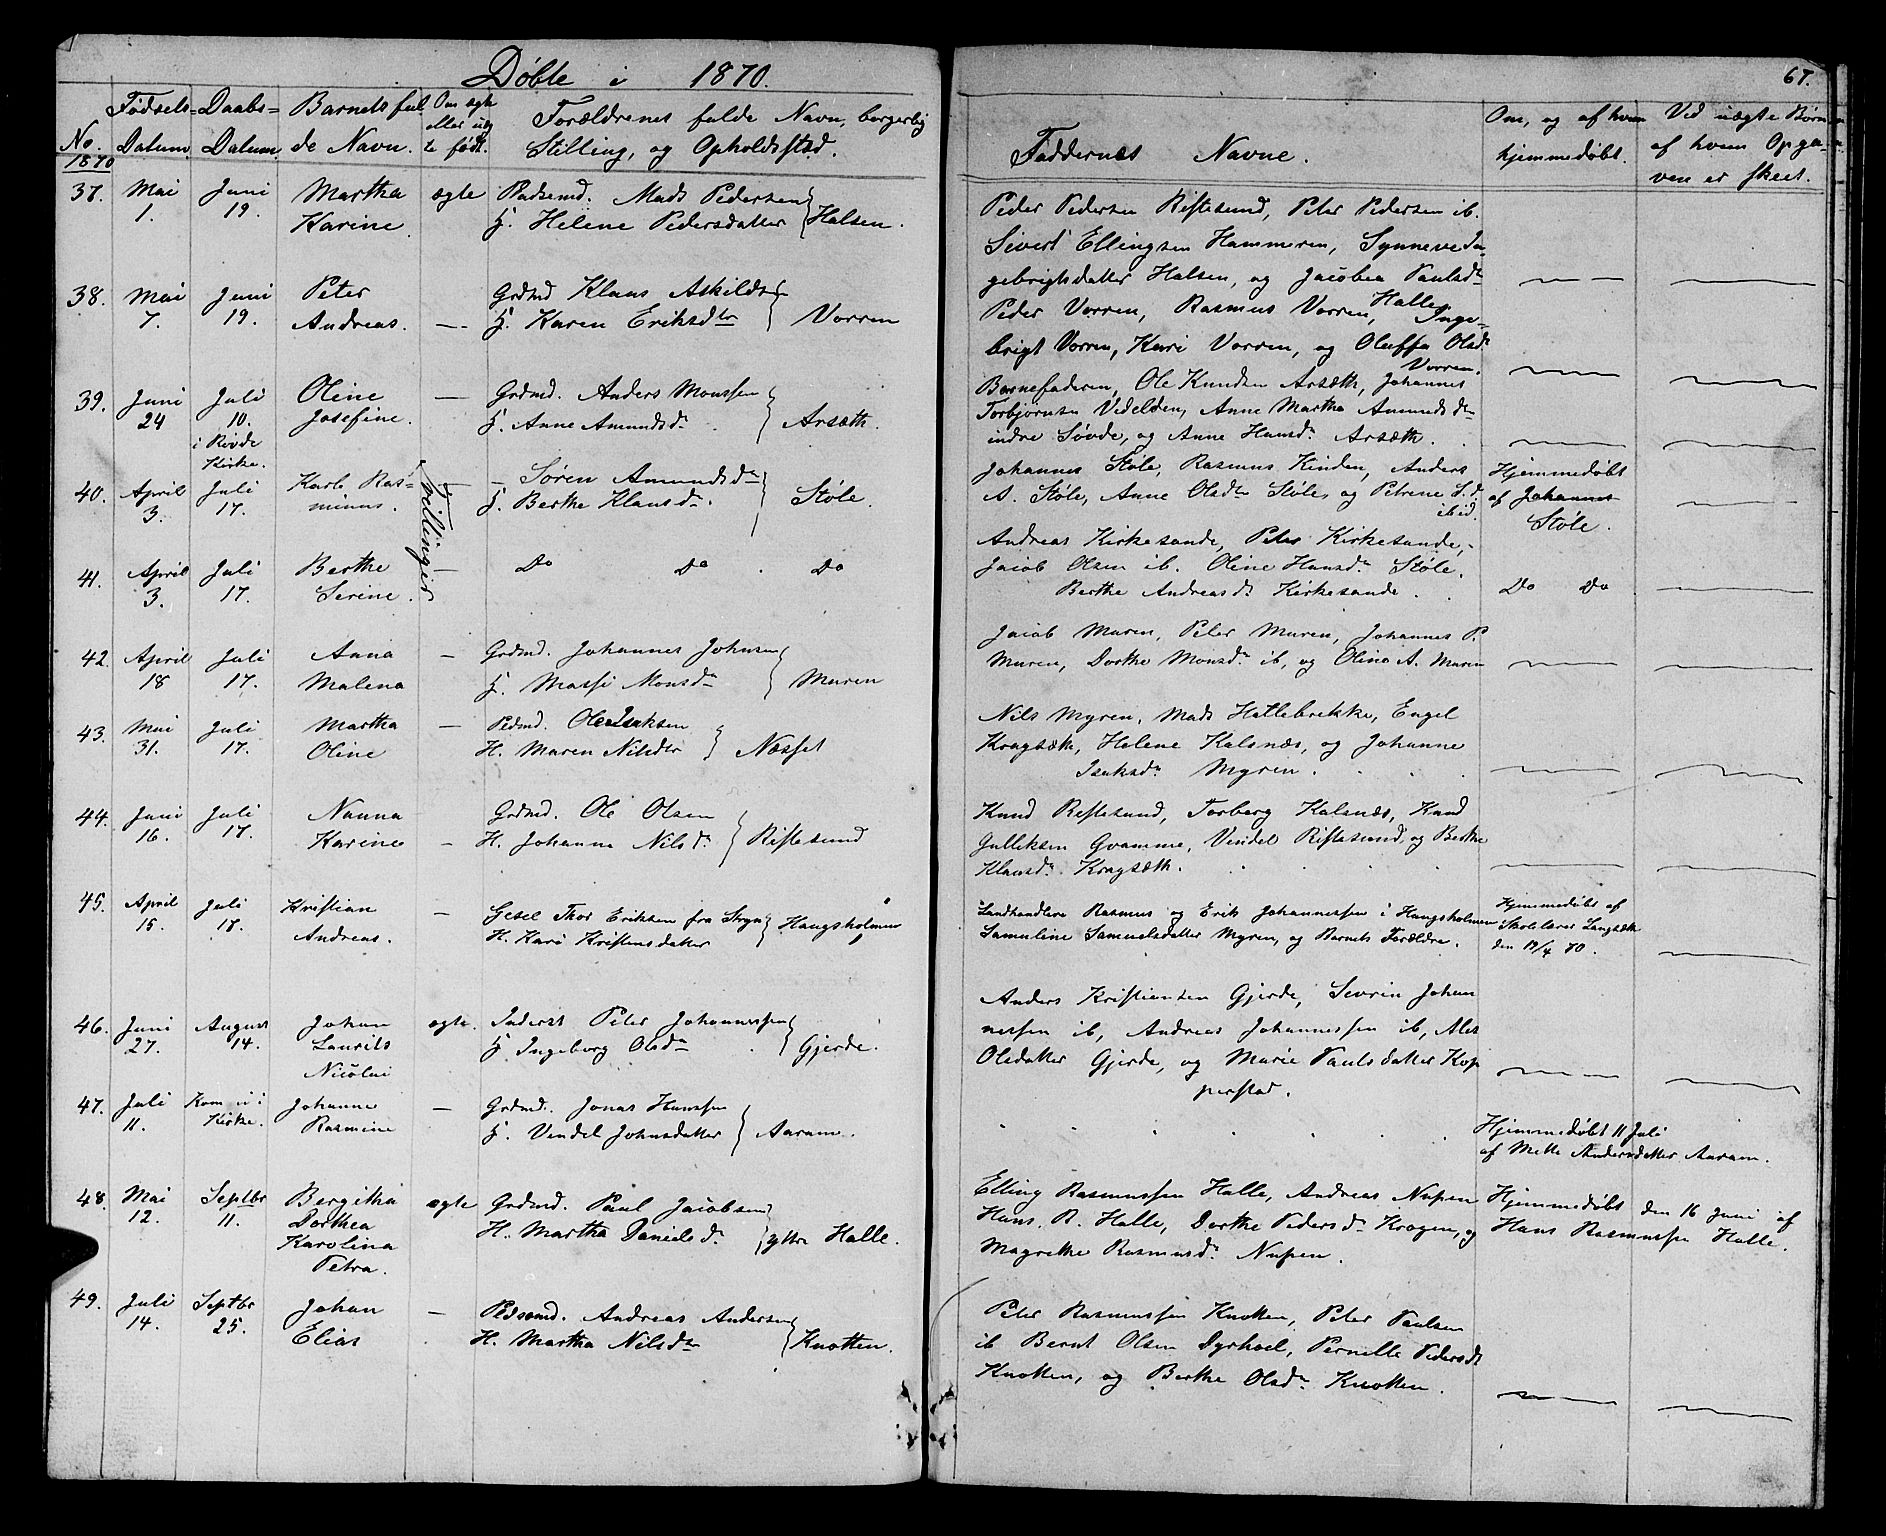 Døbte i 1870.
67.
No.
Fødsels-
Datum.
Daabs-
Datum.
Barnets ful
de Navn.
Om ægte
eller uæg
te født.
Forældrenes fulde Navn, borgerlig
Stilling, og Opholdssted.
Faddernes Navne.
Om, og af hvem
hjemmedøbt.
Ved uægte Børn
af hvem Opga-
ven er skeet.
1870
37. Mai 1. Juni 19. Martha ægte Pladsmd. Mads Pedersen
Karine. H. Helene Pedersdatter } Halsen.
Peder Pedersen Riftesund, Peter Pedersen ib.
Sivert Ellingsen Hammeren, Synneve In
gebrigtsdatter Halsen, og Jacobea Paulsdr
Halle
38. Mai 7. Juni 19. Peter Grdmd Klaus Askilds
Andreas. — H. Karen Eriksdtr } Vorren
Peder Vorren, Rasmus Vorren, Inge-
brigt Vorren, Kari Vorren, og Oluffa Olsdr
Vorren.
39. Juni 24 Juli 10. i Rovde Kirke. Oline — Grdmd. Anders Monssen
Josefine. H. Anne Amundsdr. } Arsæth.
Barnefaderen, Ole Knudsen Arsæth, Johannes
Torbjørnsen Videlden, Anne Martha Amundsdr
indre Søvde, og Anne Hansdr Arsæth.
40. April 3. Juli 17. Karl Ras-
minus.
Tvillinger
— Søren Amunds
H. Berthe Klausdr. } Støle.
Johannes Støle, Rasmus Kinden, Anders
A. Støle, Anne Olsdtr Støle, og Petrine S.d.
ibid.
Hjemmedøbt
af Johannes
Støle.
41. April 3. Juli 17. Berthe — Do Do Do
Serine.
Andreas Kirkesande, Peter Kirkesande,
Jacob Olsen ib. Oline Hansdr Støle.
Berthe Andreasdr Kirkesande.
Do Do
42. April 18 Juli 17. Anna — Grdmd. Johannes Johnsen
Malena H. Massi Monsdr } Muren
Jacob Muren, Peter Muren, Johannes P.
Muren, Dorthe Monsdr ib, og Oline A. Muren
43. Mai 31. Juli 17. Martha — Pladsmd. Ole Isaksen
Oline H. Maren Nilsdtr } Næsset
Nils Myren, Mads Hatlebrekke, Engel
Kragsæth, Helene Kalsnæs, og Johanne
Isaksdr Myren.
44. Juni 16. Juli 17. Nanna Grdmd. Ole Olsen
Karine — H. Johanna Nilsdr } Riftesund
Knud Riftesund, Torberg Kalsnæs, Knud
Gulliksen Gvamme, Vindel Riftesund, og Berthe
Klausdr Kragsæth.
45. April 15. Juli 17. Kristian — Gesel Thor Eriksen fra Stryn
Andreas. H. Kari Kristensdatter } Haugsholmen
Landhandlere Rasmus og Erik Johannessen i Haugsholmen
Samuline Samuelsdatter Myren, og Barnets Forældre.
Hjemmedøbt af
Skolelærer Langsæth
den 19/4 70.
46. Juni 27. August 14. Johan ægte. Inderst Peter Johannessen
Laurits H. Ingeborg Olsdr } Gjerde.
Nicolai
Anders Kristiansen Gjerde, Sevrin Johan
nessen ib, Andreas Johannessen ib, Alet
Olsdatter Gjerde, og Marie Paulsdatter Kop
perstad.
47. Juli 11. Kom ei i Kirke. Johanne — Grdmd. Jonas Hanssen
Rasmine H. Vendel Johnsdatter } Aaram.
Hjemmedøbt 11 Juli
af Mette Andersdatter Aaram.
48. Mai 12. Septbr 11. Bergitha ægte Grdmd. Paul Jacobsen
Dorthea H. Martha Danielsdr } ytre Halle.
Karolina
Petra.
Elling Rasmussen Halle, Andreas Nupen
Hans R. Halle, Dorthe Pedersdr Kragen, og
Magrethe Rasmusdr Nupen.
Hjemmedøbt den 16 Juni af
Hans Rasmussen Halle.
49. Juli 14. Septbr 25. Johan — Pladsmd. Andreas Andersen
Elias H. Martha Nilsdtr } Knotten.
Peter Rasmussen Knotten, Peter Paulsen
ib Bernt Olsen Dyrhoel, Pernelle Pedersdr
Knotten, og Berthe Olsdr Knotten.